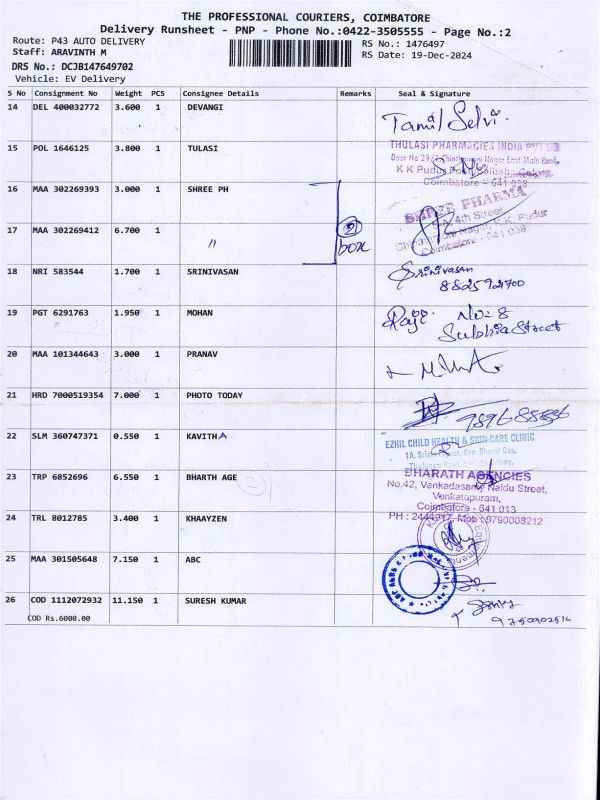 THE PROFESSIONAL COURIERS, COIMBATORE
Delivery Runsheet - PNP - Phone No.:0422-3505555 - Page No.:2
Route: P43 AUTO DELIVERY
RS No.: 1476497
Staff: ARAVINTH M
RS Date: 19-Dec-2024
DRS No.: DCJB147649702
Vehicle: EV Delivery
S No Consignment No Weight PCS Consignee Details Remarks Seal & Signature
14 DEL 400032772 3.600 1 DEVANGI
Tamil Selvi.
15 POL 1646125 3.800 1 TULASI
THULASI PHARMACIES INDIA PVT LTD
Door No 29/1 Chinthamani Nagar East Main Road,
K K Pudur Post, Saibaba Colony,
Coimbatore - 641 038
16 MAA 302269393 3.000 1 SHREE PH
SHREE PHARMA
4th Street
K.K. Pudur
Coimbatore - 641 038
17 MAA 302269412 6.700 1 〃
2 box
18 NRI 583544 1.700 1 SRINIVASAN
Srinivasan
8825921700
19 PGT 6291763 1.950 1 MOHAN
Raji No: 8
Subbia Street
20 MAA 101344643 3.000 1 PRANAV
21 HRD 7000519354 7.000 1 PHOTO TODAY
22 SLM 360747371 0.550 1 KAVITHA
EZHIL CHILD HEALTH & SKIN CARE CLINIC
23 TRP 6852696 6.550 1 BHARTH AGE
BHARATH AGENCIES
No.42, Venkadasamy Naidu Street,
Venkatapuram,
Coimbatore - 641 013
24 TRL 8012785 3.400 1 KHAAYZEN
25 MAA 301505648 7.150 1 ABC
26 COD 1112072932 11.150 1 SURESH KUMAR
COD Rs.6000.00